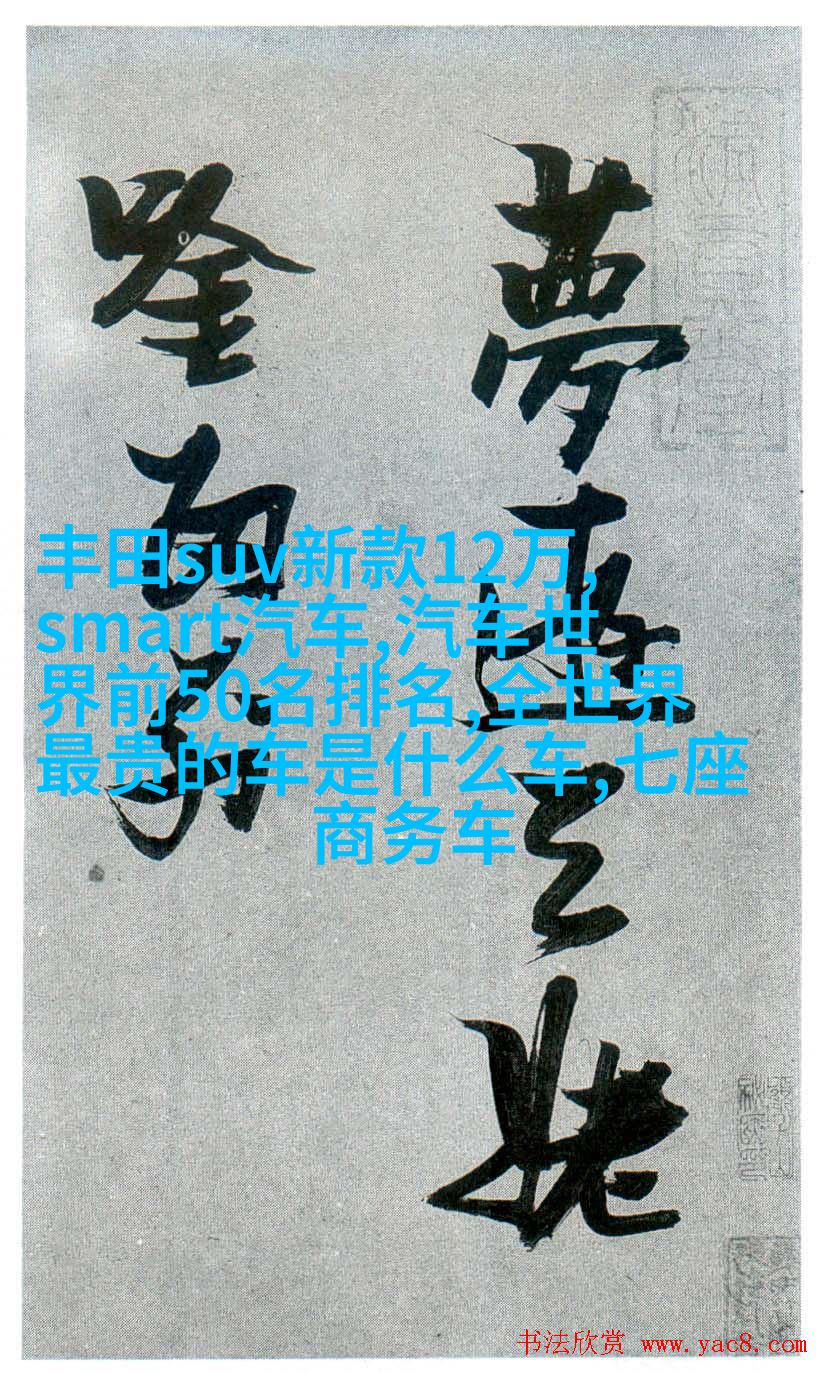 夢遊天姥
唫留别
丰田suv新款12万,
smart汽车,汽车世
界前50名排名,全世界
最贵的车是什么车,七座
商务车
书法欣赏 www.yac8.com